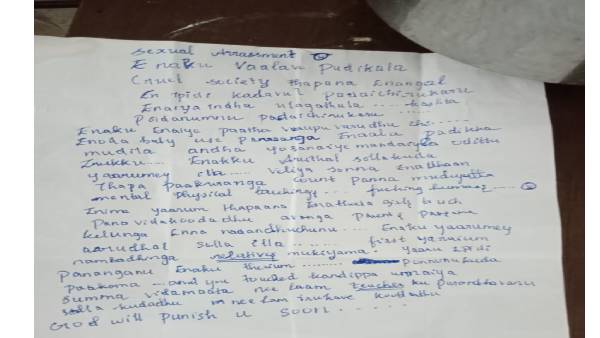 Sexual Arrassment
Enaku Vaalave Pudikala
Cruel society thapana Enangal
En ipidi kadavul padaichirukaru
Enaiya indha ulagathula ....
Poidanumnu padaichirukaru .....
Enaku Enaiye paatha veupu varudhu chi...
Enoda body use Pananga Enaala padikka
mudila andha yosanaiye mandaiyla odittu
Irukku.... Enakku Arudhal sollakuda
yaarumey illa ... veliya sonna Enaithaan
Thapa paakuranga count panna mudiyatha
mental Physical touching ... fucking humans ....
Inime yaarum thapaana Enathula girls touch
Pana vidakoodadhu avanga
kelunga Enna nadandhuchunu ... Enaku yaarumey
aarudhal solla illa .......... first yaraiyum
nambadhinga relatives mukiyama. yaaru ipidi
Pananganu Enaku therium ........ pannunukuda
paakama ... and you touched kandippa unaiya
summa vidamaata nee laam teacher ku
solla kudadhu nee lam irukave koodadhu
God will punish u soon .....